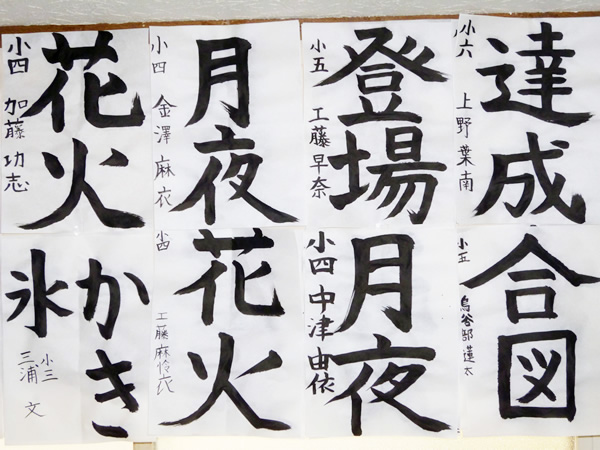 達成
小六 上野 葉南
登場
小五 工藤 早奈
月夜
小四 金澤 麻衣
花火
小四 加藤 功志
合図
小五 鳥谷部 蓮太
月夜
小四 中津 由依
花火
小四 工藤
かき
氷
小三
三浦 文